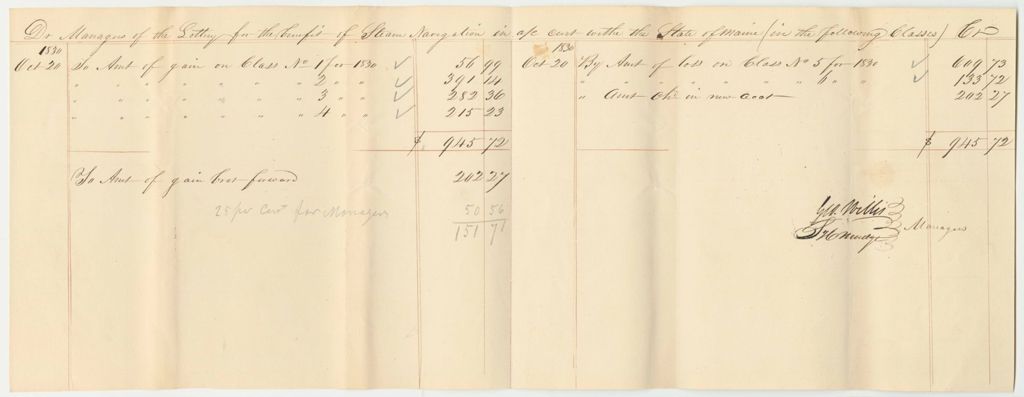 Dr Managers of the Lottery for the benefit of Steam Navigation in a/c curt with the State of Maine (in the following Classes) Cr
1830
Oct 20 To Amt of gain on Class No 1 for 1830 ✓ 56 99
" " " " " " " 2 " " ✓ 391 14
" " " " " " " 3 " " ✓ 282 36
" " " " " " " 4 " " ✓ 215 23
$ 945 72
To Amt of gain brot forward 202 27
25 per Cent for Managers 50 56
151 71
1830
Oct 20 By Amt of loss on Class No 5 for 1830 ✓ 609 73
" " " " " " 6 " ✓ 133 72
" Amt in new acct 202 27
$ 945 72
Geo. Willis
Managers